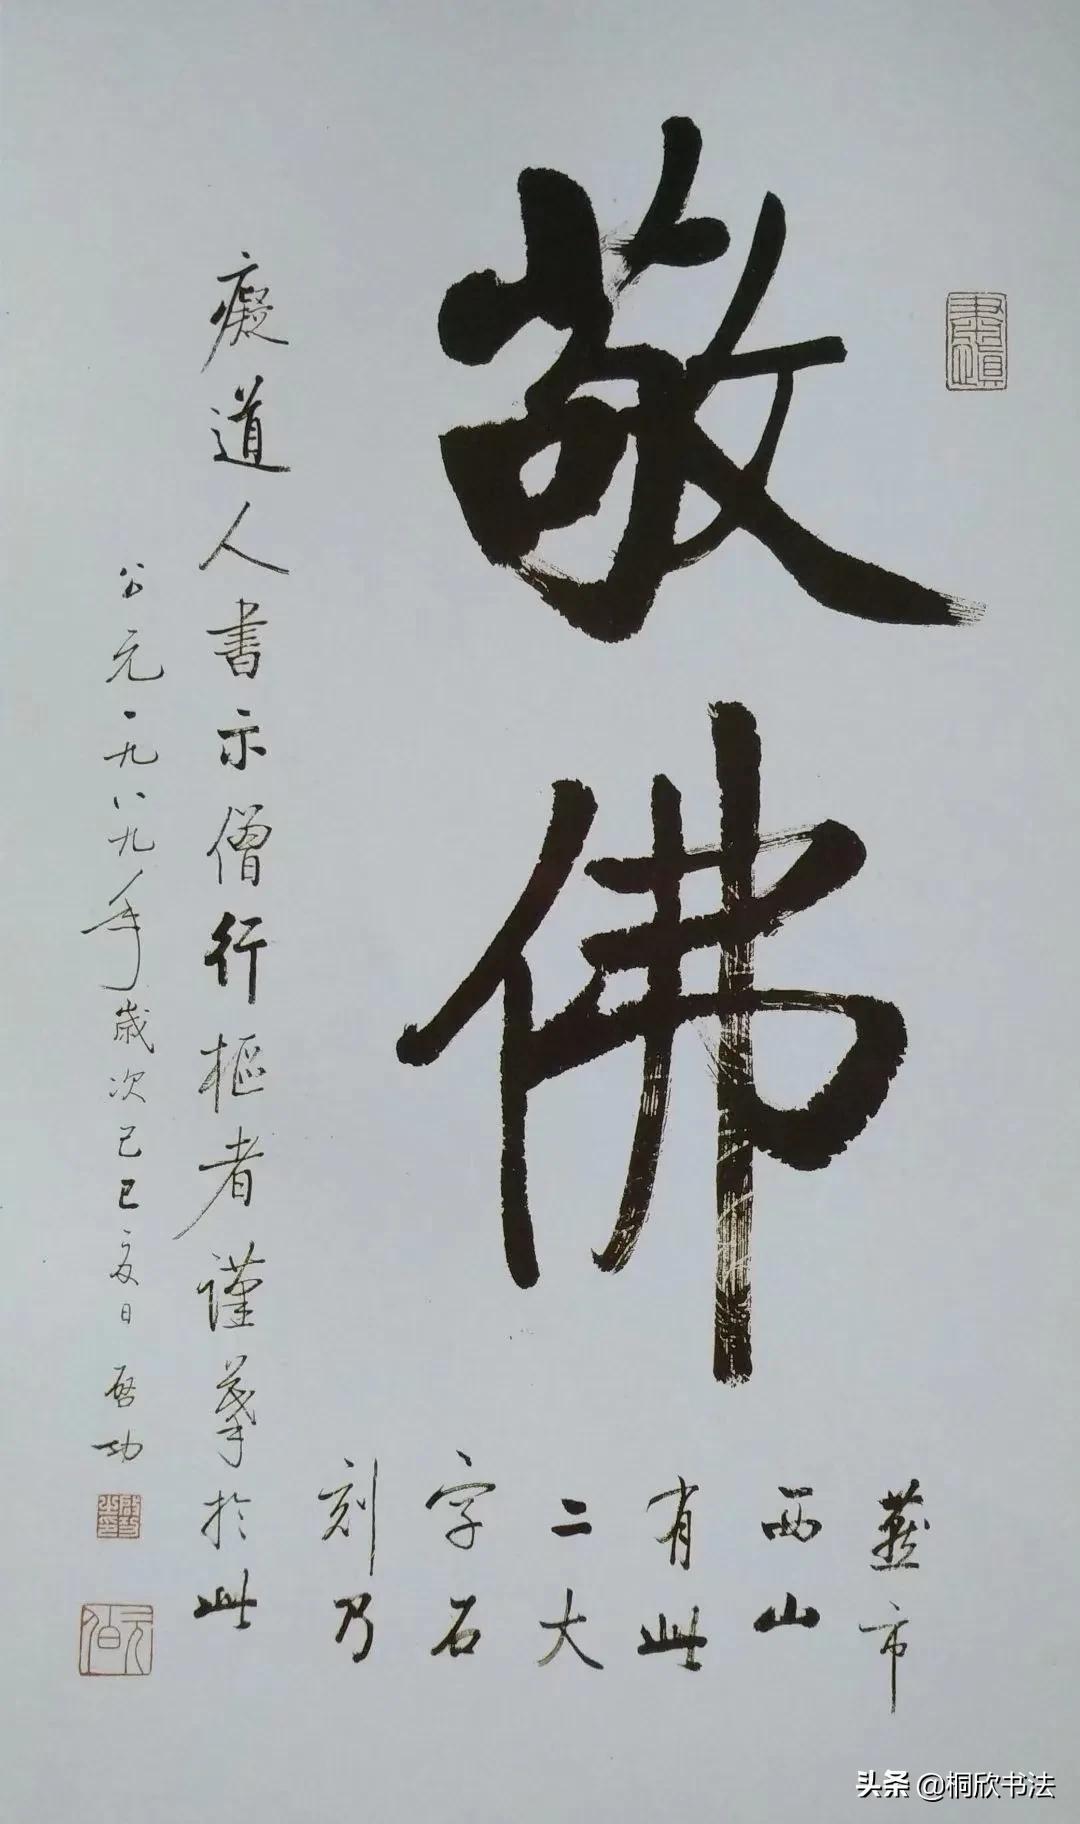 敬佛
燕市
西山
有此
二大
字石
刻乃
癡道人書示僧行樞者謹摹於此
公元一九八九年歲次己巳夏日啓功
头条 @桐欣书法